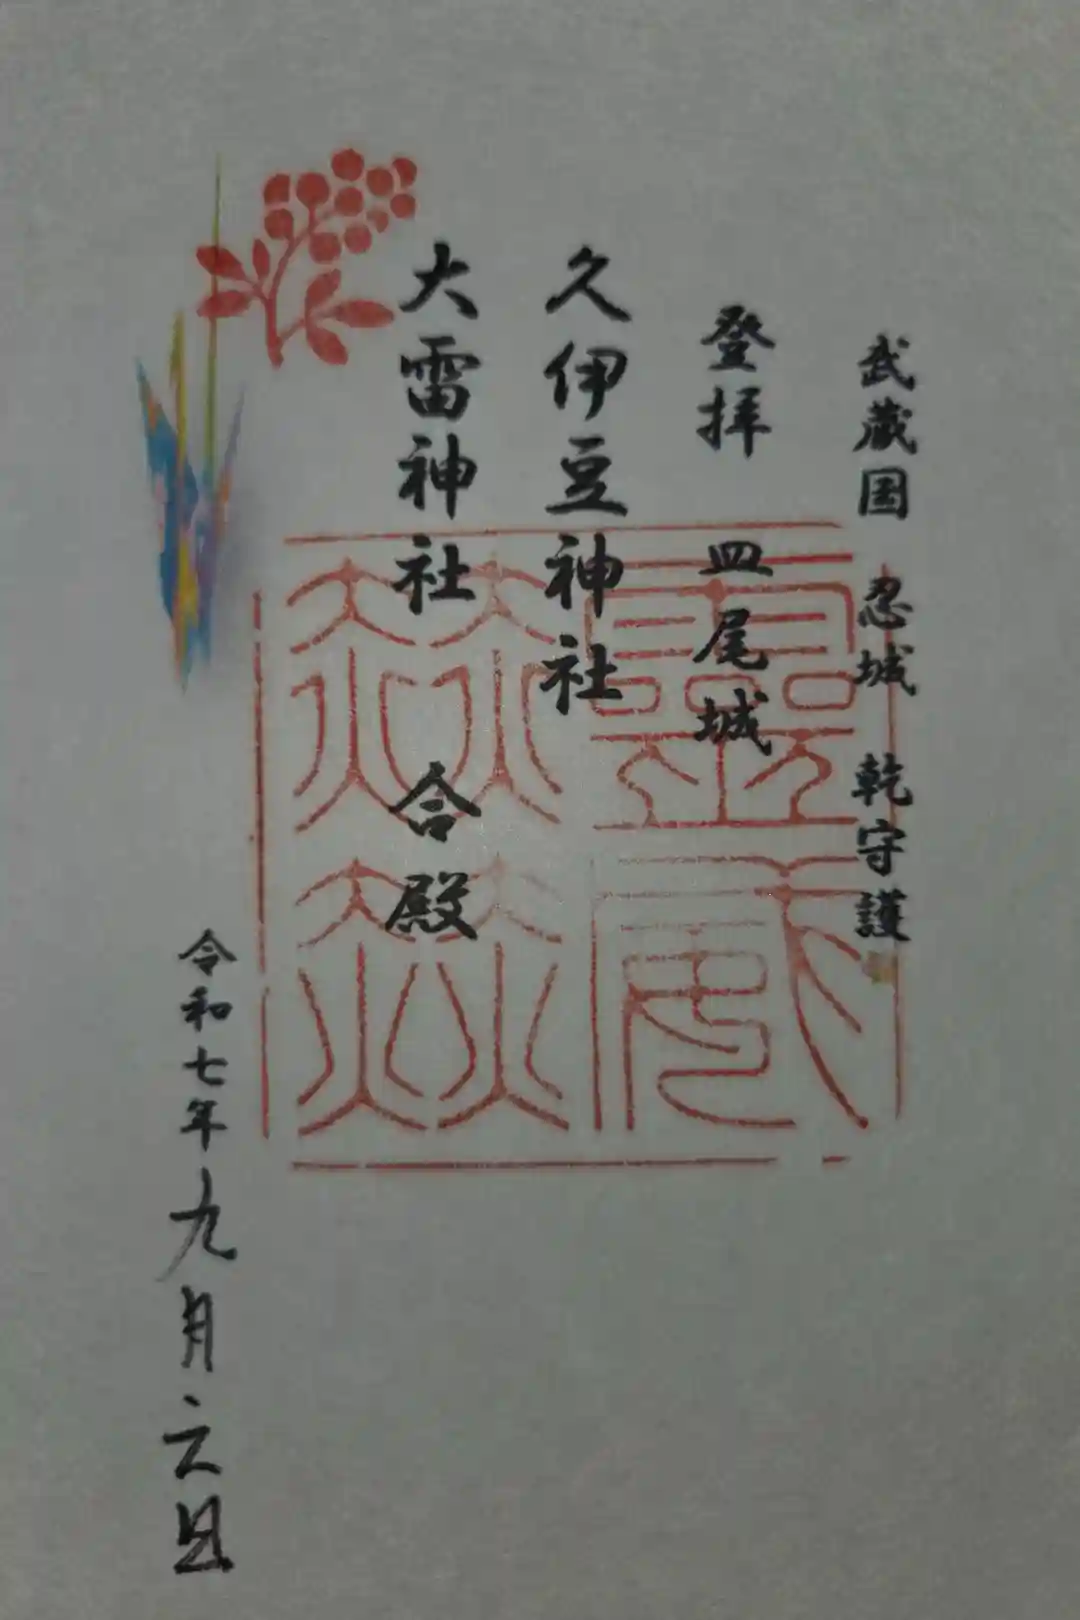 武蔵国 忍城 乾守護
登拝 皿尾城
久伊豆神社
大雷神社 合殿
令和七年九月六日